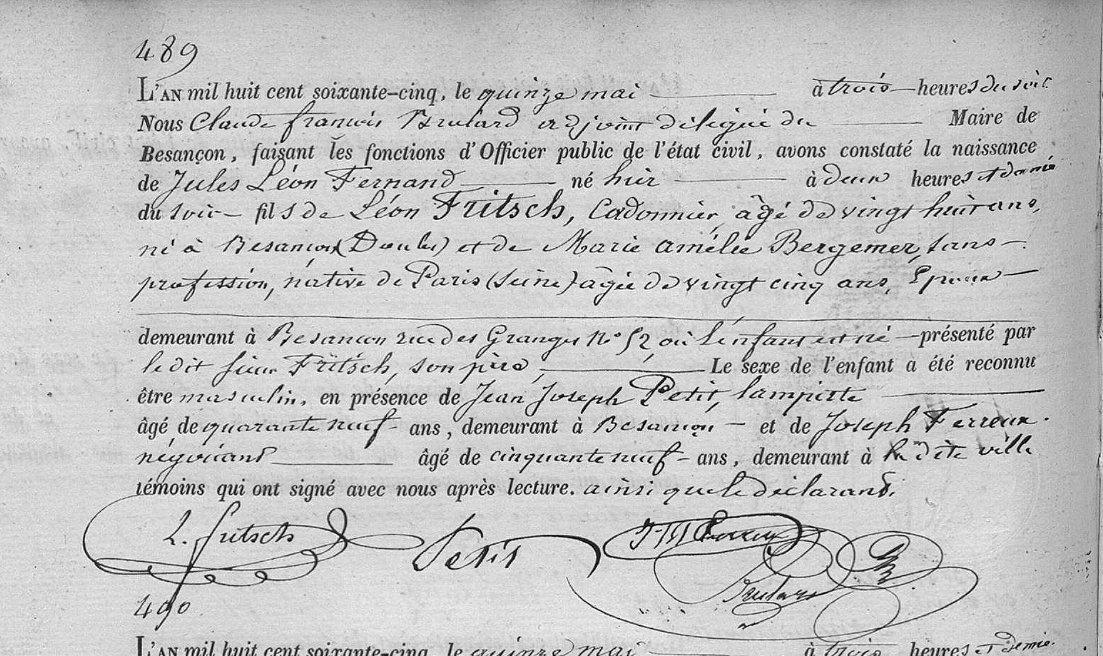 489
L'AN mil huit cent soixante-cinq, le quinze mai à trois heures du soir.
Nous Claude francois Brulard adjoint délégué du Maire de
Besançon, faisant les fonctions d'Officier public de l'état civil, avons constaté la naissance
de Jules Léon Fernand né hier à deux heures et demie
du soir fils de Léon Fritsch, Cadonnier, agé de vingt huit ans,
né à Besançon (Doubs) et de Marie amélie Bergemer, sans
profession, native de Paris (Seine) agée de vingt cinq ans, Epoux
demeurant à Besancon rue des Granges No 52, où l'enfant est né présenté par
le dit sieur Fritsch, son père, Le sexe de l'enfant a été reconnu
être masculin, en présence de Jean Joseph Petit, lampiste
âgé de quarante neuf ans, demeurant à Besancon et de Joseph Ferreux
négociant âgé de cinquante neuf ans, demeurant à la dite ville
témoins qui ont signé avec nous après lecture. ainsi que le déclarant.
L. fritsch Petit
Brulard
490
L'AN mil huit cent soixante-cinq, le quinze mai à trois heures et demie